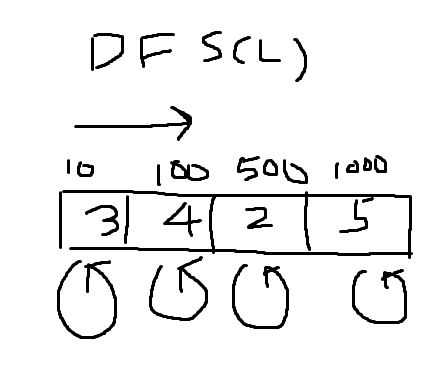 DFS(L)
10 100 500 1000
3 4 2 5